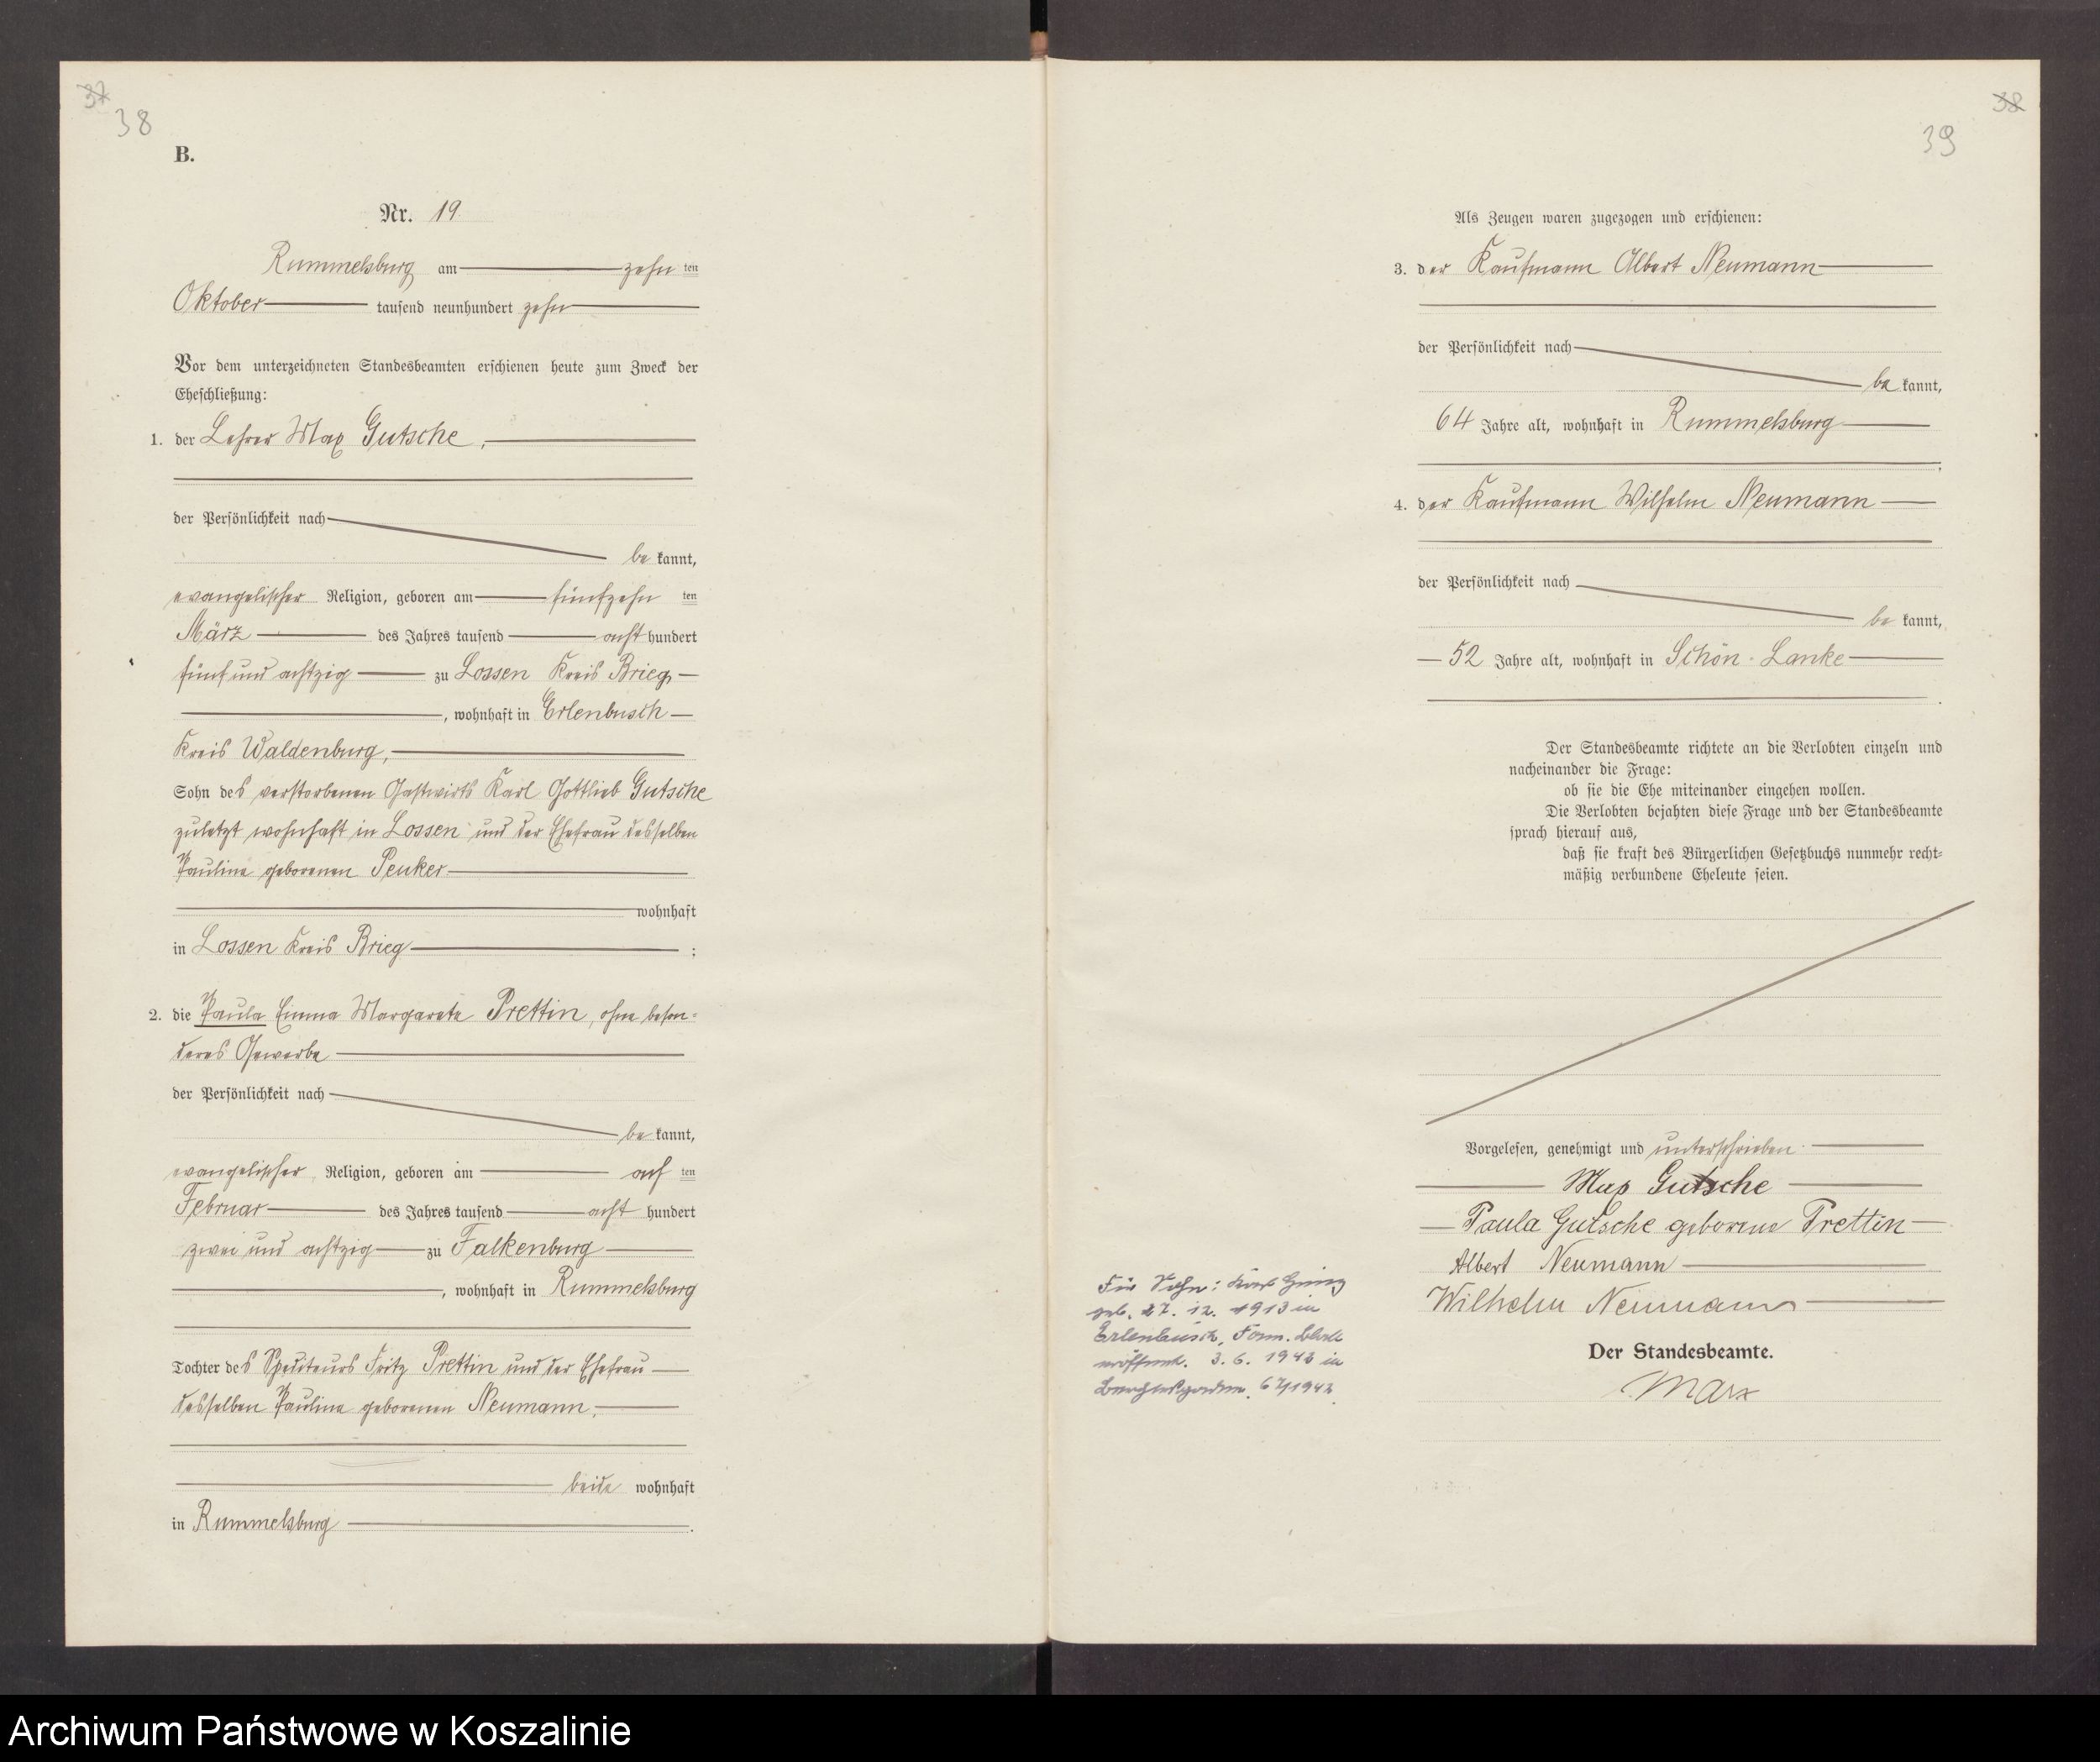 37
38
B.
Nr. 19
Rummelsburg am zehn ten
Oktober tausend neunhundert zehn
Vor dem unterzeichneten Standesbeamten erschienen heute zum Zweck der
Eheschließung:
1. der Lehrer Max Gutsche,
der Persönlichkeit nach
be kannt,
evangelischer Religion, geboren am fünfzehn ten
März des Jahres tausend acht hundert
fünf und achtzig zu Lossen Kreis Brieg,
, wohnhaft in Erlenbusch
Kreis Waldenburg,
Sohn des verstorbenen Gastwirts Karl Gottlieb Gutsche
zuletzt wohnhaft in Lossen und der Ehefrau desselben
Pauline geborenen Peuker
wohnhaft
in Lossen Kreis Brieg ;
2. die Paula Emma Margarete Prettin, ohne beson-
deres Gewerbe
der Persönlichkeit nach
be kannt,
evangelischer Religion, geboren am acht ten
Februar des Jahres tausend acht hundert
zwei und achtzig zu Falkenburg
, wohnhaft in Rummelsburg
Tochter des Spediteurs Fritz Prettin und der Ehefrau
desselben Pauline geborenen Neumann,
beide wohnhaft
in Rummelsburg .
38
39
Als Zeugen waren zugezogen und erschienen:
3. der Kaufmann Albert Neumann
der Persönlichkeit nach
be kannt,
64 Jahre alt, wohnhaft in Rummelsburg
4. der Kaufmann Wilhelm Neumann
der Persönlichkeit nach
be kannt,
52 Jahre alt, wohnhaft in Schön-Lanke
.
Der Standesbeamte richtete an die Verlobten einzeln und
nacheinander die Frage:
ob sie die Ehe miteinander eingehen wollen.
Die Verlobten bejahten diese Frage und der Standesbeamte
sprach hierauf aus,
daß sie kraft des Bürgerlichen Gesetzbuchs nunmehr recht-
mäßig verbundene Eheleute seien.
Vorgelesen, genehmigt und unterschrieben
Max Gutsche
Paula Gutsche geborene Prettin
Albert Neumann
Wilhelm Neumann
Der Standesbeamte.
Marx
Sohn:
geb. 27. 12. 1913 in
Erlenbusch,
3. 6. 1943 in
Archiwum Państwowe w Koszalinie